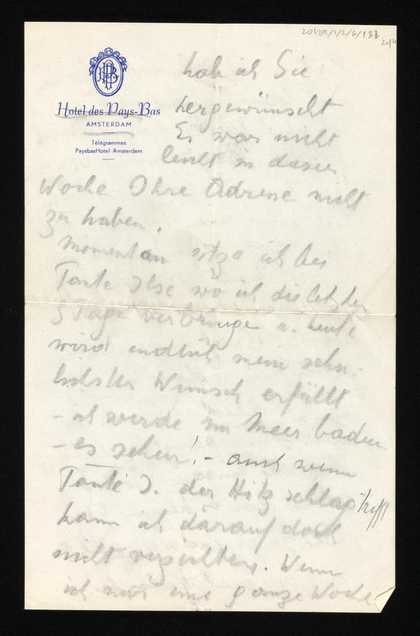 Hotel des Pays-Bas
AMSTERDAM
Télégrammes
PaysbasHotel Amsterdam
hab ich Sie
hergewünscht
Es war nicht
leicht in dieser
Woche Ihre Adresse nicht
zu haben.
Momentan sitze ich bei
Tante Ilse wo ich die letzten
3 Tage verbringe u. heute
wird endlich mein sehn-
lichster Wunsch erfüllt
- ich werde im Meer baden
- es sehen! - auch wenn
Tante I. der Hitzschlag trifft
kann ich darauf doch
nicht verzichten. Wenn
ich nur eine ganze Woche